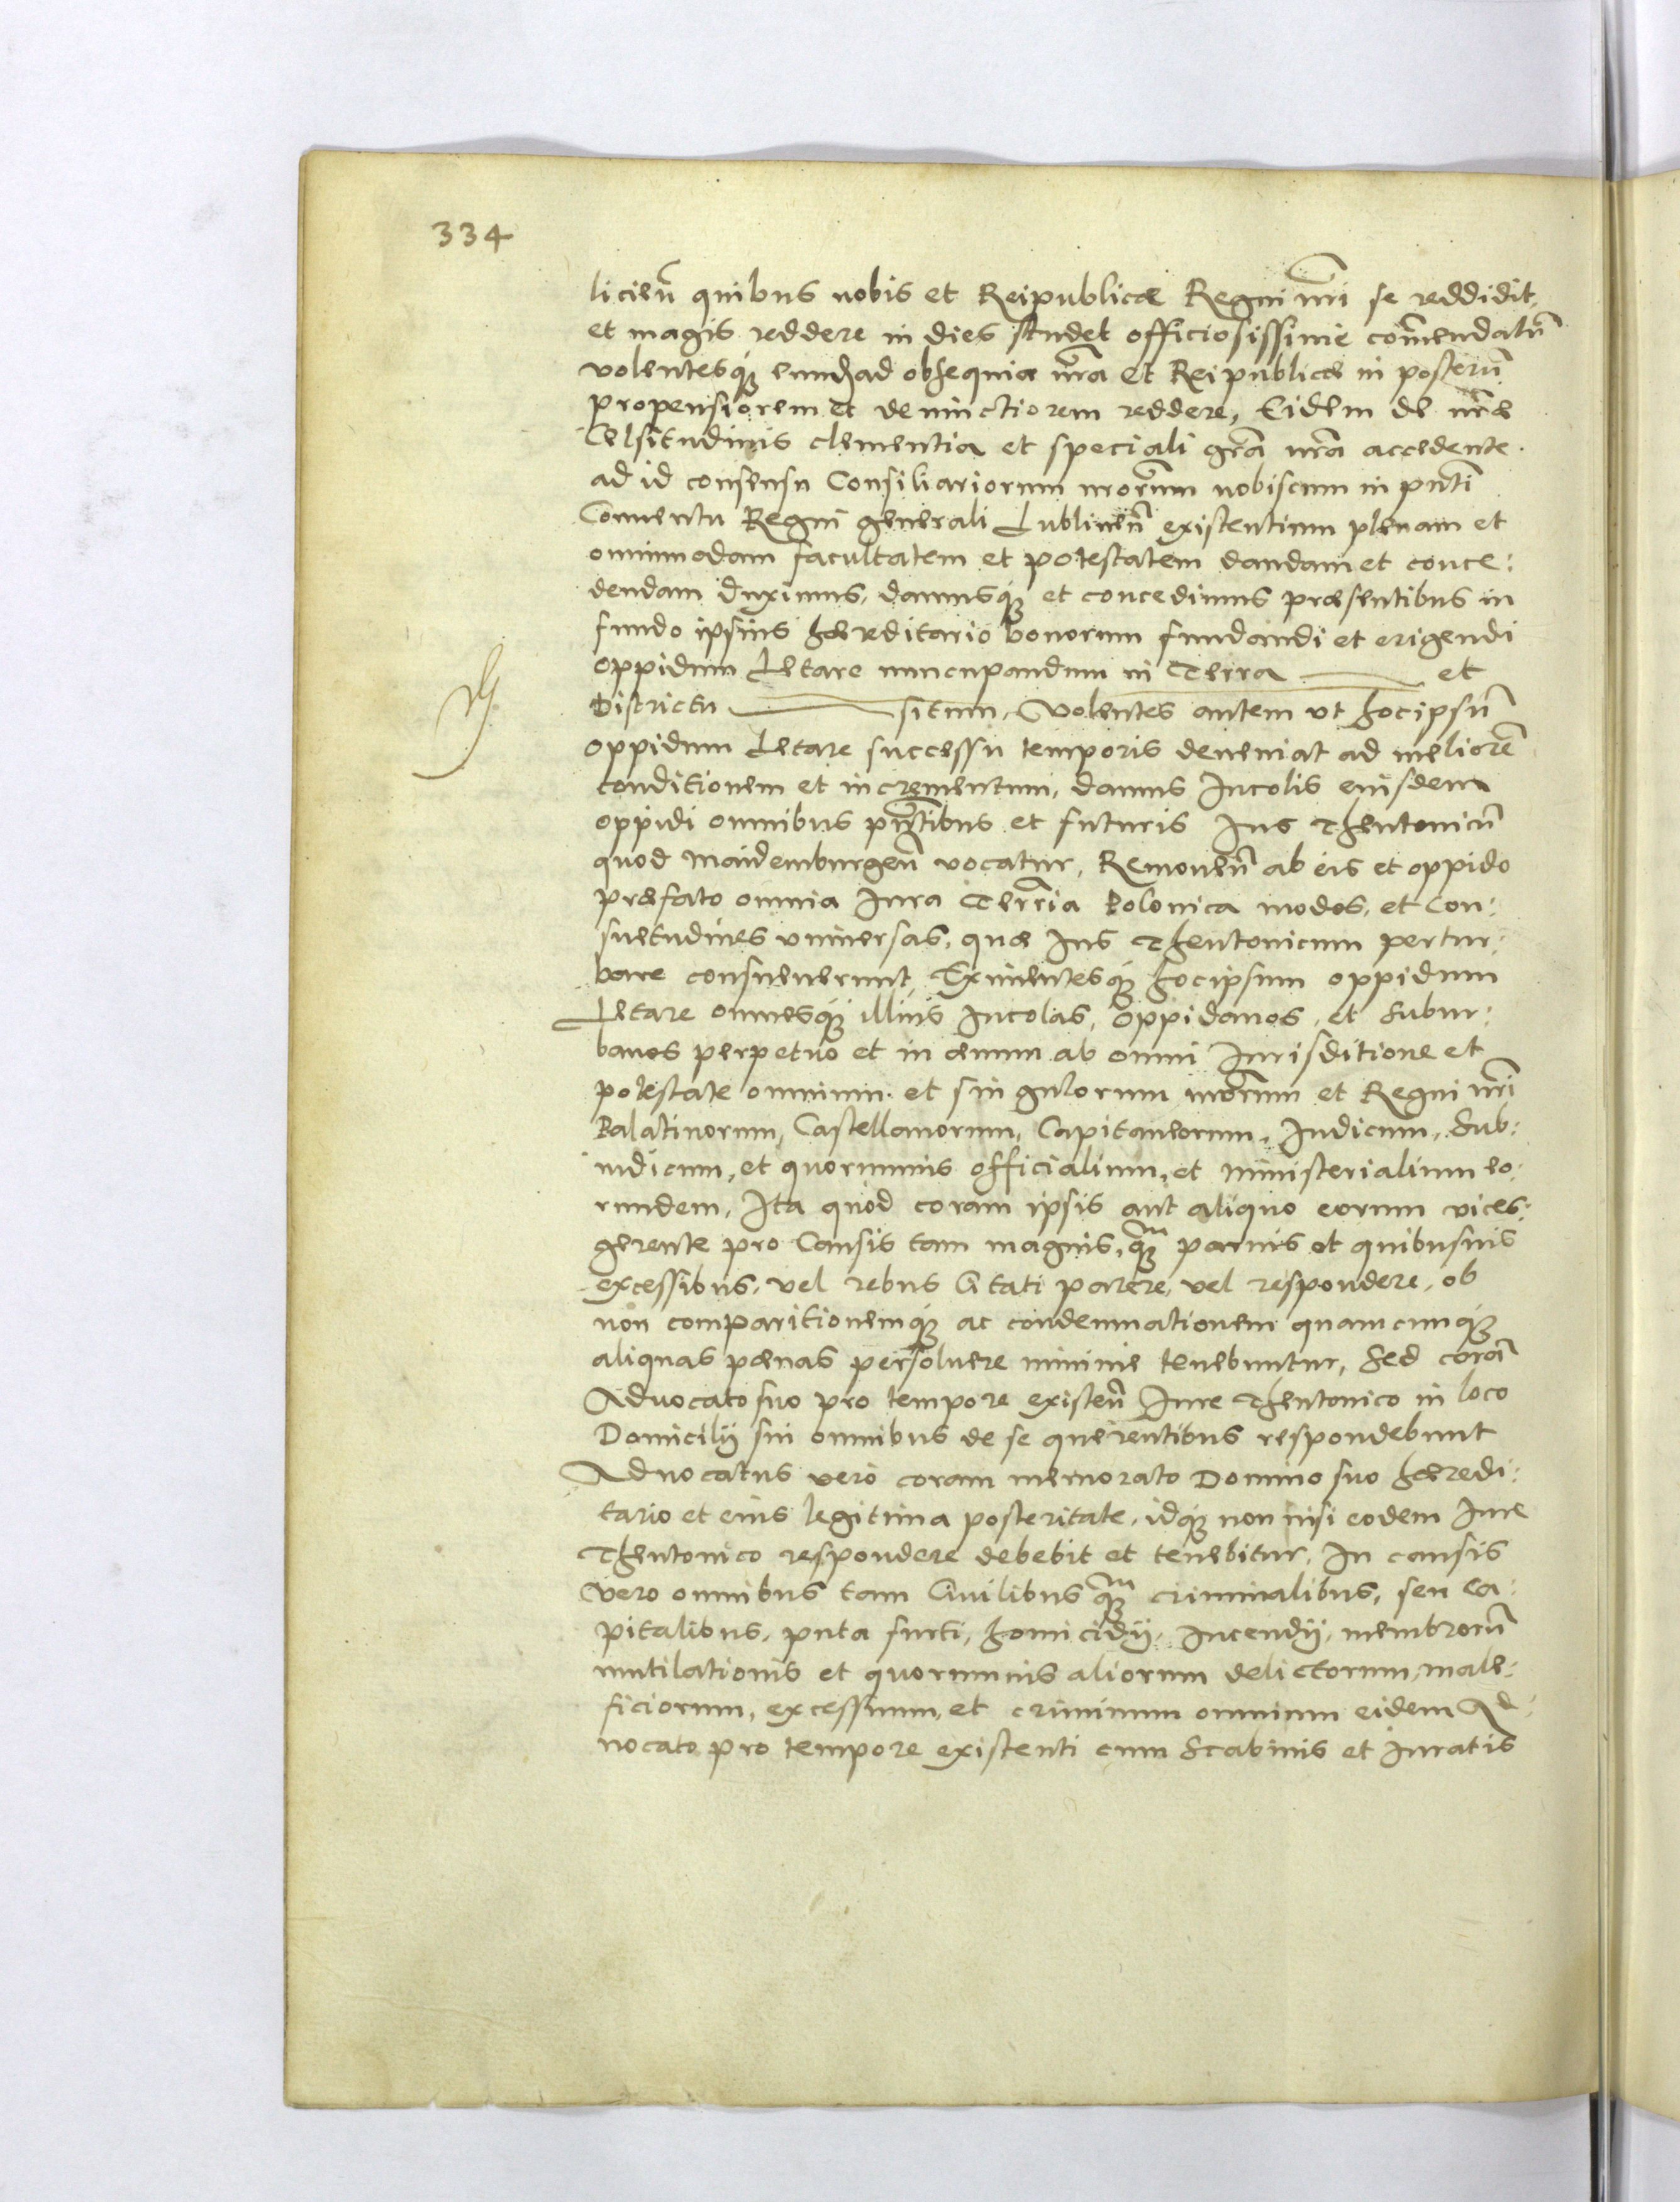 334
licień quibus nobis et Reipublicæ Regni nr̃i se reddidit,
et magis reddere in dies studet officiosissime com̃endatũ
volentesq́ꝫ eund̃ ad obsequia nr̃a et Reipublicæ in posterũ
propensiorem et deuinctiorem reddere, Eidem de nr̃æ
Celsitudinis clementia et speciali gr̃a nr̃a accedente
ad id consensu Consiliariorum nrõrum nobiscum in pñti
Conuentu Regni generali Lublineñ existentium plenam et
omnimodam facultatem et potestatem dandam et conce:
dendam duximus, damusq́ꝫ et concedimus præsentibus in
fundo ipsius hæreditario bonorum fundandi et erigendi
oppidum Letare nuncupandum in Terra ——— et
Districtu ——— situm, Volentes autem vt hocipsũ
oppidum Letare successu temporis deueniat ad meliorẽ
conditionem et incrementum, damus Incolis eiusdem
oppidi omnibus pñtibus et futuris Ius Theutonicũ
quod Maidemburgeñ vocatur, Remoueñ ab eis et oppido
præfato omnia Iura Terr̃ia Polonica modos, et Con:
suetudines vniuersas, quæ Ius Theutonicum pertur:
bare consueuerunt, Eximentesq́ꝫ hocipsum oppidum
Letare omnesq́ꝫ illius Incolas, Oppidanos, et subur:
banos perpetuo et in æuum ab omni Iurisditione et
potestate omnium et singulorum nrõrum et Regni nr̃i
Palatinorum, Castellanorum, Capitaneorum, Iudicum, Sub:
iudicum, et quorumuis officialium, et ministerialium eo:
rundem, Ita quòd coram ipsis aut aliquo eorum vices:
gerente pro Causis tam magnis, qꝫm paruis et quibusuis
excessibus, vel rebus Citati parere, vel respondere, ob
non comparitionemq́ꝫ ac condemnationem quamcunq́ꝫ
aliquas pænas persoluere minime tenebuntur, Sed corã
Aduocato suo pro tempore existeñ Iure Theutonico in loco
Domicilij sui omnibus de se querentibus respondebunt
Aduocatus verò coram memorato Domino suo hæredi:
tario et eius legitima posteritate, idq́ꝫ non nisi eodem Iure
Theutonico respondere debebit et tenebitur, In causis
Vero omnibus tam Ciuilibus qꝫm criminalibus, seu ca:
pitalibus, puta furti, homicidij, Incendij, membrorũ
mutilationis et quorumuis aliorum delictorum, male:
ficiorum, excessuum, et criminum omnium eidem Ad:
uocato pro tempore existenti cum Scabinis et Iuratis